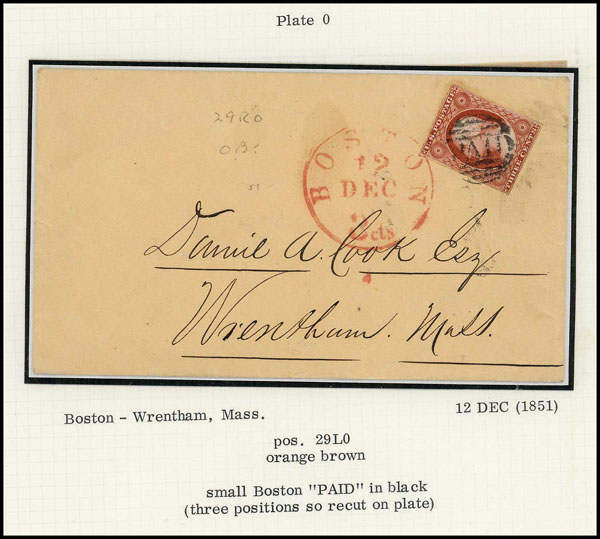 Plate 0
29R0
OB
U.S. POSTAGE
THREE CENTS
PAID
BOSTON
12
DEC
3 cts
Daniel A. Cook Esq
Wrentham. Mass.
Boston - Wrentham, Mass.
12 DEC (1851)
pos. 29L0
orange brown
small Boston "PAID" in black
(three positions so recut on plate)